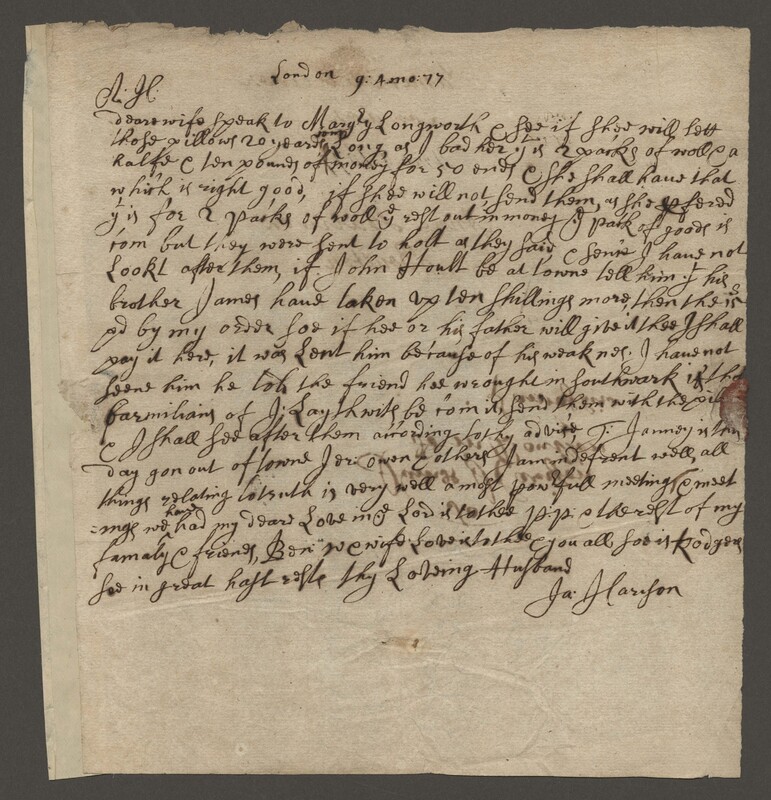 London 9: 4mo: 77
A: H:
deare wife speak to Margry Longworth & see if shee will sett
those pillows 20 yeards long, as I bad her yt is 2 packs of woll & a
halfe & ten pounds of money for 50 ends & she shall have that
which is right good, if shee will not send them, as she pfered
yt is for 2 packs of woll ye rest out in money ye pack of goods is
com but they were sent to holt as they said, & sence I have not
Lookt after them, if John Hoult be at towne tell him yt his
brother James have taken up ten shillings more, then the
pd by my order soe if hee or his father will give it thee I shall
pay it here, it was Lent him because of his weaknes: I have not
seene him he tols the friend hee wrought in southwark if the
barmilians of J: Laythwits be com in send them with the
& I shall see after them according to thy advise T: Janney is
day gon out of towne Jer: owen & others I am indefrent well, all
things relating to truth is very well a most powrfull meeting & meet
-ings we have had my deare Love in ye Lord is to thee P:P: & the rest of my
family & friends, Ben: & wife Love is to thee & you all soe is Rodgers
soe in great hast rests thy Loveing Husband
Ja: Harison